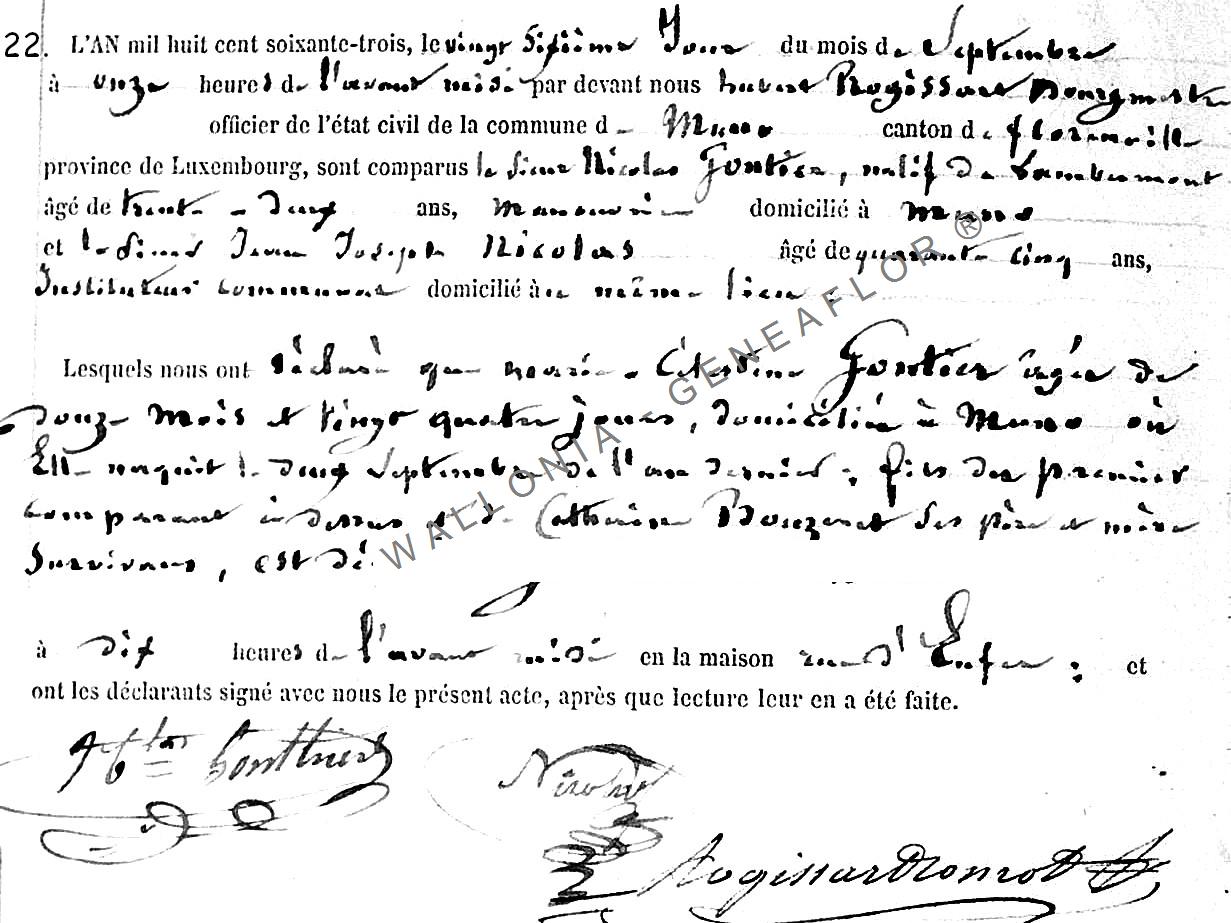 22. L'AN mil huit cent soixante-trois, le vingt sixième Jour du mois de Septembre
à onze heures de l'avant midi par devant nous hubert Rogissart Bourgmestre
officier de l'état civil de la commune de Muno canton de florenville
province de Luxembourg, sont comparus le Sieur Nicolas Gontier, natif de Lambermont
âgé de trente-deux ans, Manouvrier domicilié à Muno
et le Sieur Jean Joseph Nicolas âgé de quarante cinq ans,
Instituteur communal domicilié à même lieu
Lesquels nous ont déclaré que marie Célestine Gontier âgée de
douze mois et vingt quatre jours, domiciliée à Muno où
Elle naquit le deux Septembre de l'an dernier; fils du premier
comparant ci dessus et de Catherine ses père et mère
Survivans, est dé
à dix heures de l'avant midi en la maison rue d'Enfer; et
ont les déclarants signé avec nous le présent acte, après que lecture leur en a été faite.
Nicolas
Rogissart
WALLONIA - GENEAFLOR ®